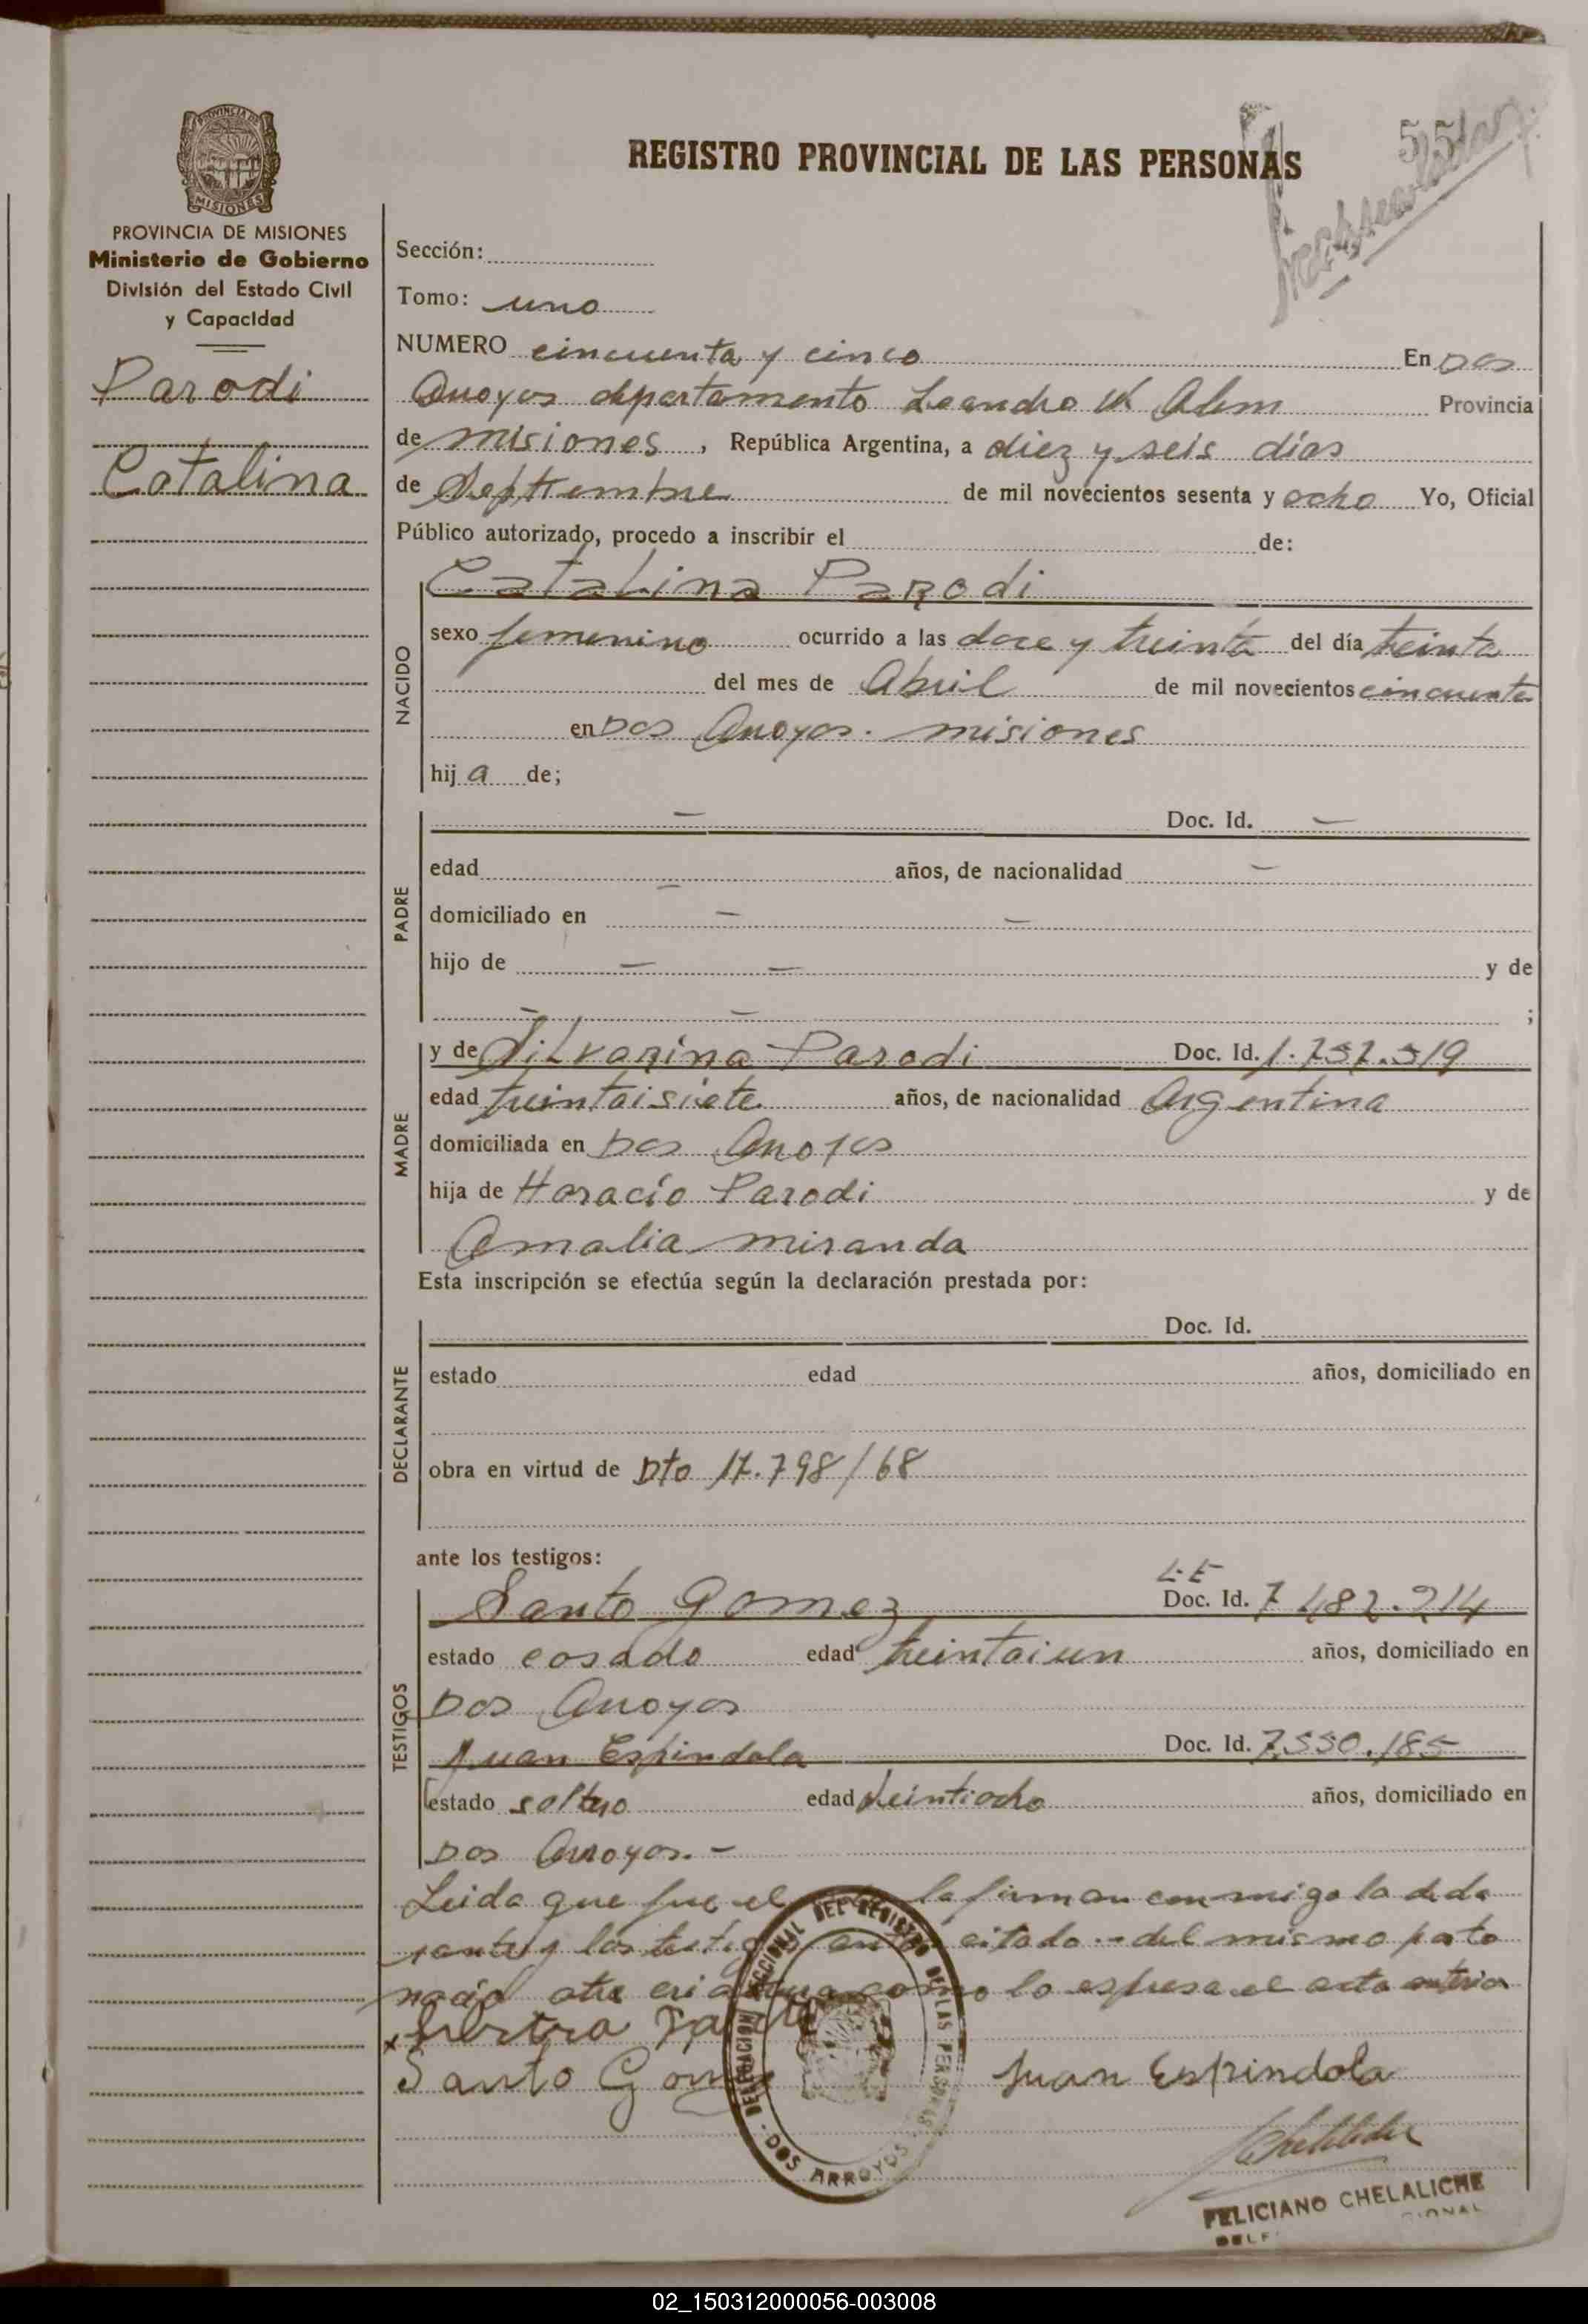 PROVINCIA DE MISIONES
PROVINCIA DE MISIONES
Ministerio de Gobierno
División del Estado Civil
y Capacidad
Parodi
Catalina
REGISTRO PROVINCIAL DE LAS PERSONAS
55
Sección:
Tomo: uno
NUMERO cincuenta y cinco En Dos
Arroyos departamento Leandro N Alem Provincia
de misiones, República Argentina, a diez y seis días
de Septiembre de mil novecientos sesenta y ocho Yo, Oficial
Público autorizado, procedo a inscribir el de:
NACIDO
Catalina Parodi
sexo femenino ocurrido a las doce y treinta del día treinta
del mes de Abril de mil novecientos cincuenta
en Dos Arroyos. misiones
hij a de;
PADRE
— Doc. Id. —
edad — años, de nacionalidad —
domiciliado en — —
hijo de — — y de
— — ;
MADRE
y de Silvanina Parodi Doc. Id. 1.757.519
edad treintaisiete años, de nacionalidad Argentina
domiciliada en Dos Arroyos
hija de Horacio Parodi y de
Amalia miranda
Esta inscripción se efectúa según la declaración prestada por:
DECLARANTE
Doc. Id.
estado edad años, domiciliado en
obra en virtud de Dto 17.798/68
ante los testigos:
TESTIGOS
L.E
Santo Gomez Doc. Id. 7 482.214
estado casado edad treintaiun años, domiciliado en
Dos Arroyos
Juan Espindola Doc. Id. 7.550.185
estado soltero edad veintiocho años, domiciliado en
Dos Arroyos.-
Leida que fue el la firman conmigo la decla
rante y los testigos citado.- del mismo parto
nacio otra criatura como lo espresa el acta anterior
Santo Gomez Juan Espindola
DELEGACION SECCIONAL DEL REGISTRO DE LAS PERSONAS - DOS ARROYOS
FELICIANO CHELALICHE
02_150312000056-003008